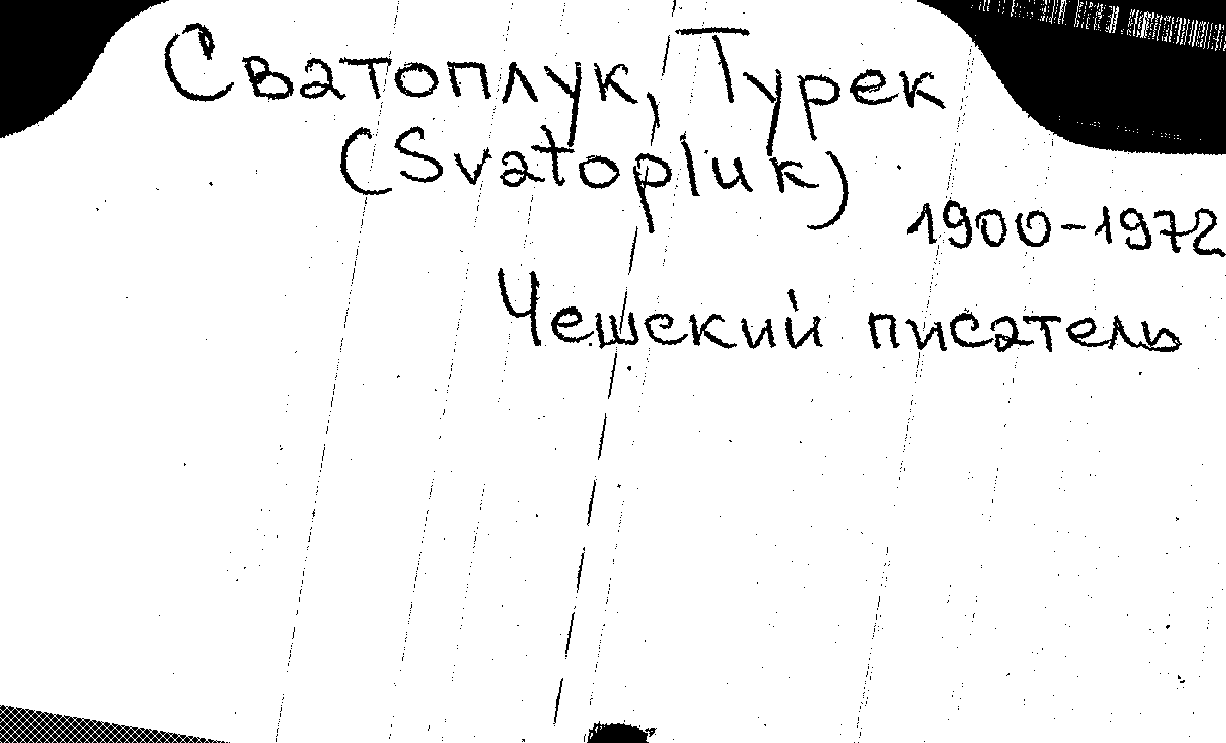 Сватоплук, Турек
(Svatopluk)
1900-1972
Чешский писатель